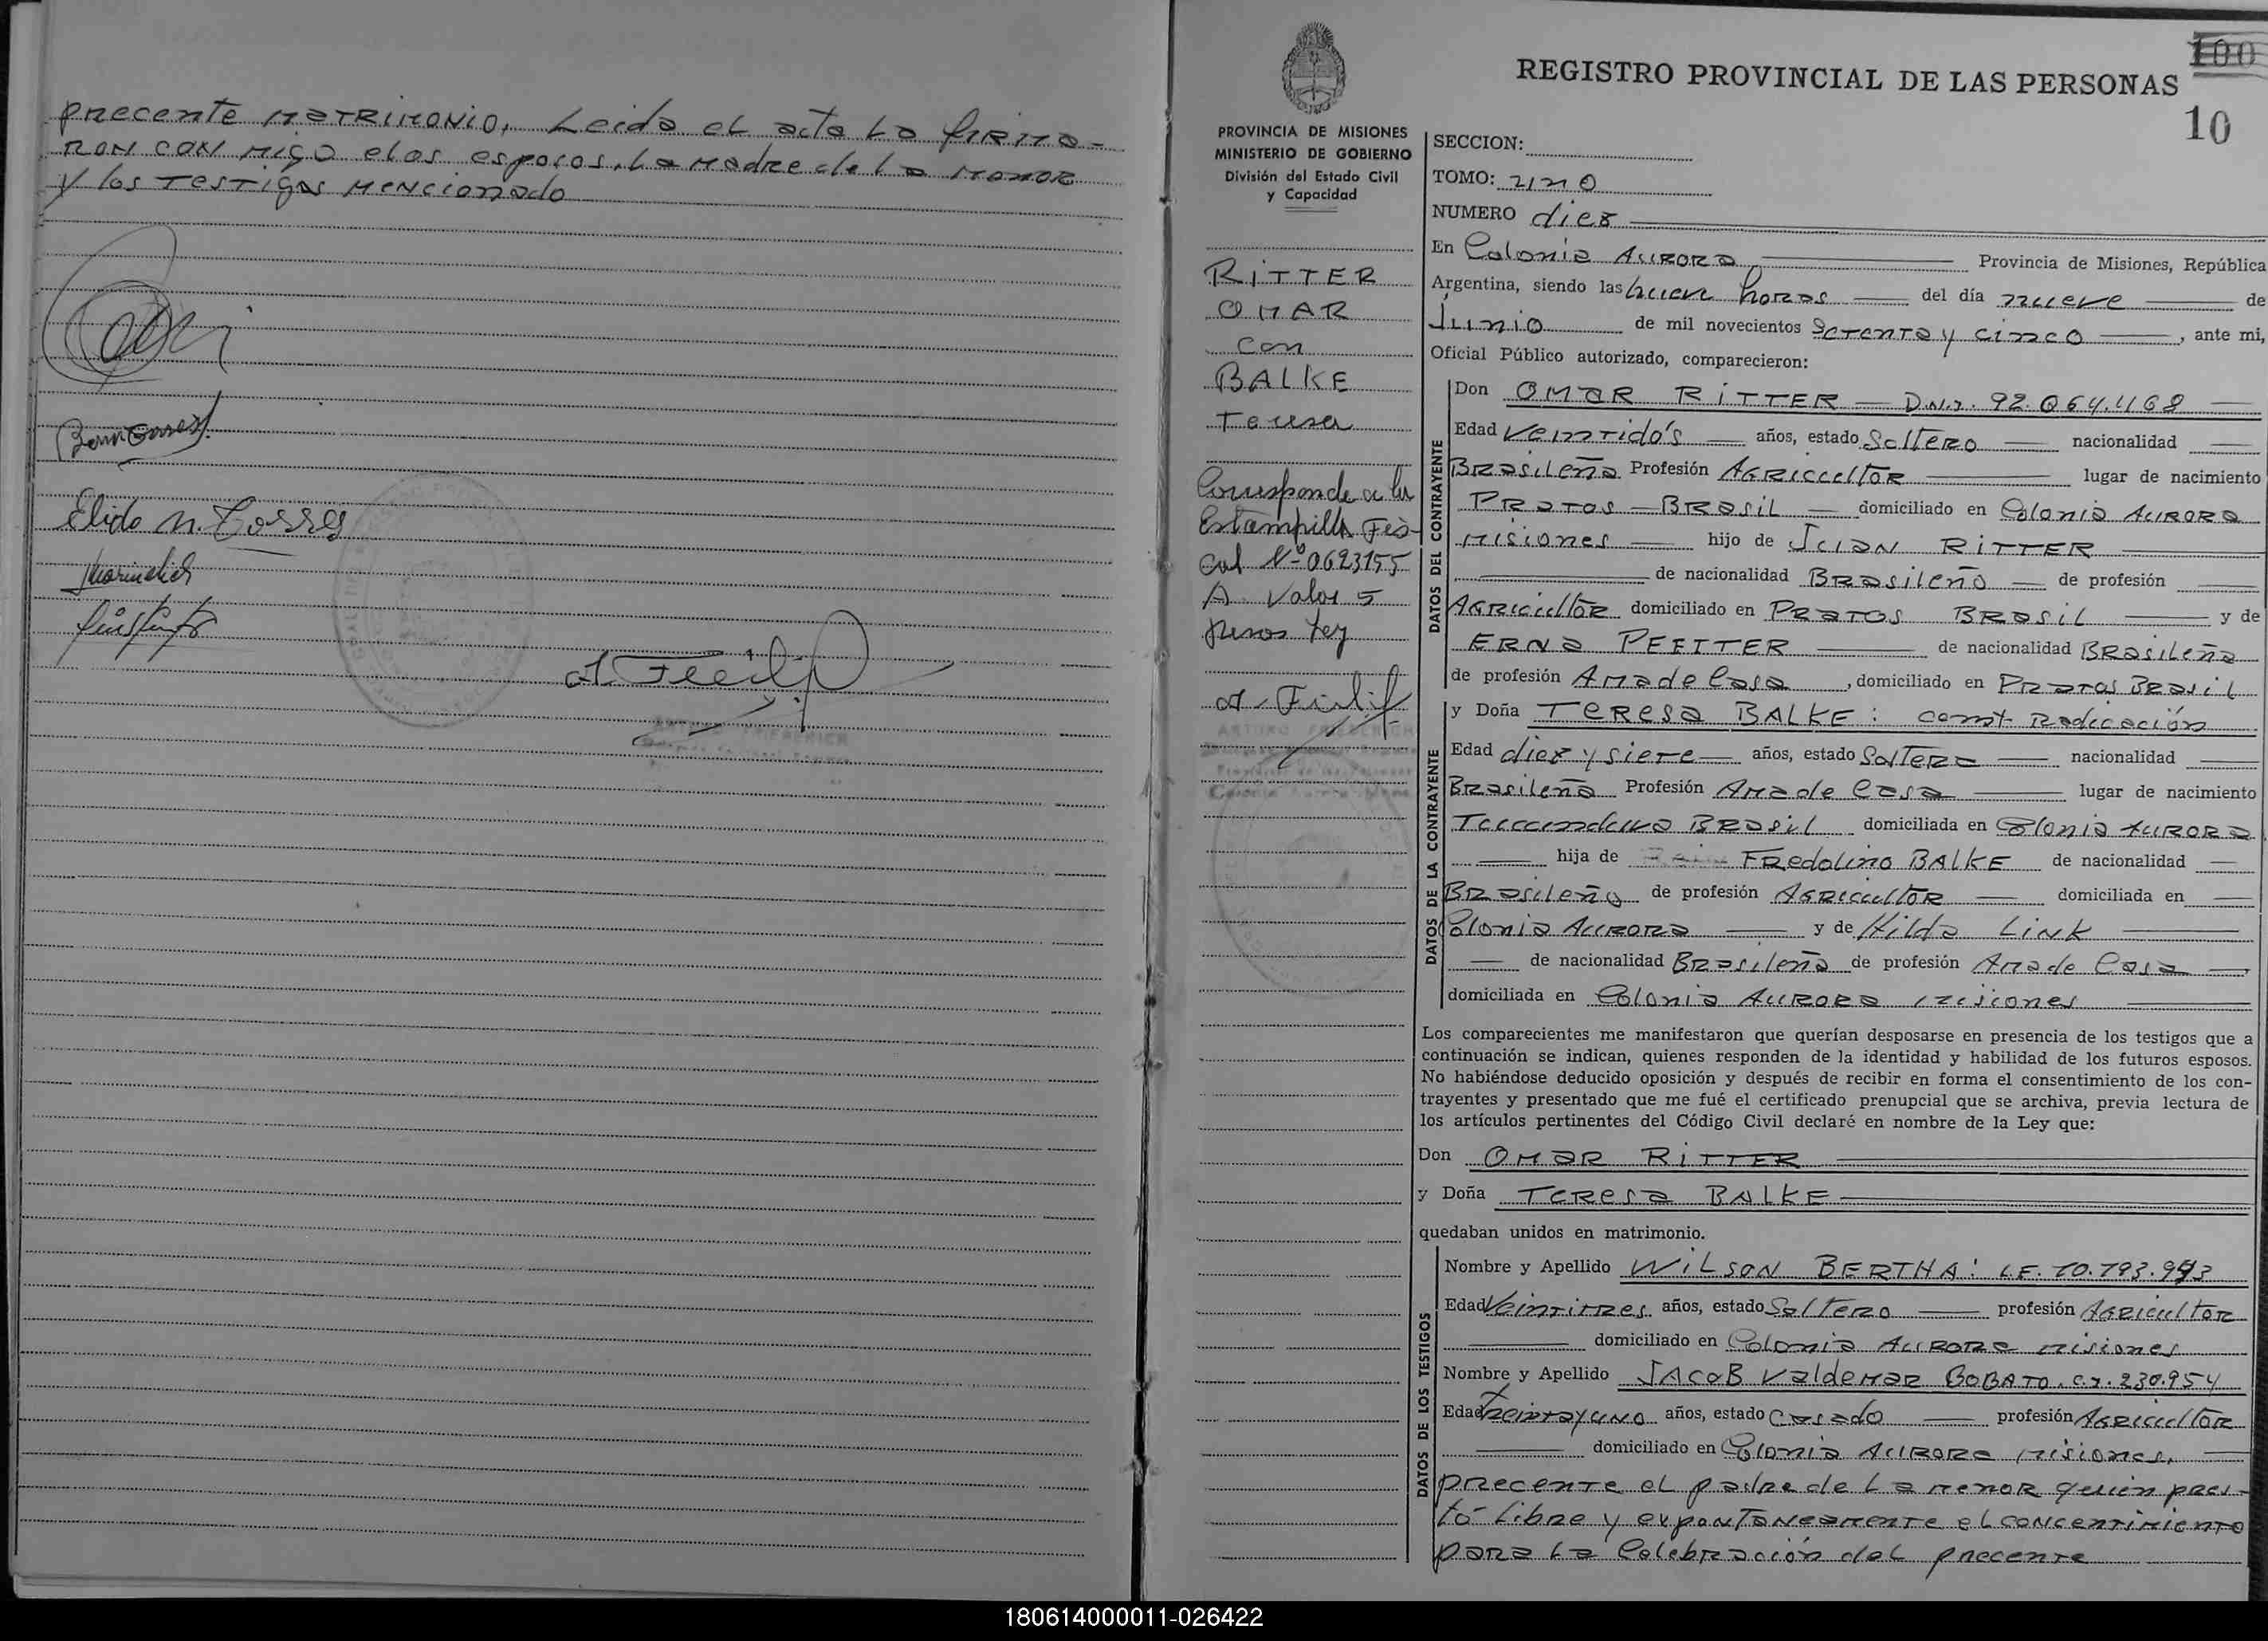 precente MaTRiMONio, Leida el acta La firma-
RON CON Migo elos esposos, La Madre de La MeNOR
y los Testigos MeNcionado
Elida N. Torres
A. Friedrich
REGISTRO PROVINCIAL DE LAS PERSONAS
100
10
PROVINCIA DE MISIONES
MINISTERIO DE GOBIERNO
División del Estado Civil
y Capacidad
RiTTER
OMAR
con
BALKE
Teresa
Corresponde a la
Estampilla Fis-
cal Nº 0623155
A. Valor 5
pesos Ley
ARTURO FRIEDERICH
SECCION:
TOMO: uno
NUMERO diez
En Colonia AURORA Provincia de Misiones, República
Argentina, siendo las nueve horas del día nueve de
Junio de mil novecientos Setenta y cinco, ante mi,
Oficial Público autorizado, comparecieron:
DATOS DEL CONTRAYENTE
Don OMaR RiTTER — D.N.I. 92.064.468
Edad Veintido's años, estado SolTeRO nacionalidad
BRasileña Profesión AGRiculToR lugar de nacimiento
PRaTos — BRasiL domiciliado en Colonia AURORa
Misiones hijo de JUaN RiTTER
de nacionalidad BRasileño de profesión
AGRiculToR domiciliado en PRaTos BRasiL y de
ERNa PEEITTER de nacionalidad BRasileña
de profesión Ama de Casa, domiciliado en PRaTos BRasiL
DATOS DE LA CONTRAYENTE
y Doña TeResa BALKE: const. Radicación
Edad diez y siete años, estado SolTeRa nacionalidad
BRasileña Profesión Ama de Casa lugar de nacimiento
Tucunduva BRasil domiciliada en Colonia AURORa
hija de FRedolino BALKE de nacionalidad
BRasileño de profesión AGRiculToR domiciliada en
Colonia AURORa y de Hilda LiNK
de nacionalidad BRasileña de profesión Ama de Casa
domiciliada en Colonia AURORa Misiones
Los comparecientes me manifestaron que querían desposarse en presencia de los testigos que a
continuación se indican, quienes responden de la identidad y habilidad de los futuros esposos.
No habiéndose deducido oposición y después de recibir en forma el consentimiento de los con-
trayentes y presentado que me fué el certificado prenupcial que se archiva, previa lectura de
los artículos pertinentes del Código Civil declaré en nombre de la Ley que:
Don OMaR RiTTER
y Doña TeResa BALKE
quedaban unidos en matrimonio.
DATOS DE LOS TESTIGOS
Nombre y Apellido WiLSON BERTHA: L.E. 10.793.993
Edad Veintitres años, estado SolTeRo profesión AGRiculToR
domiciliado en Colonia AURORa Misiones
Nombre y Apellido JAcoB ValdeMaR BOBATO. C.I. 230.954
Edad Treintayuno años, estado casado profesión AGRiculToR
domiciliado en Colonia AURORa Misiones,
precente el padre de La MeNOR quien pres-
tó Libre y expontaneamente el concentimiento
para La Celebración del precente
180614000011-026422